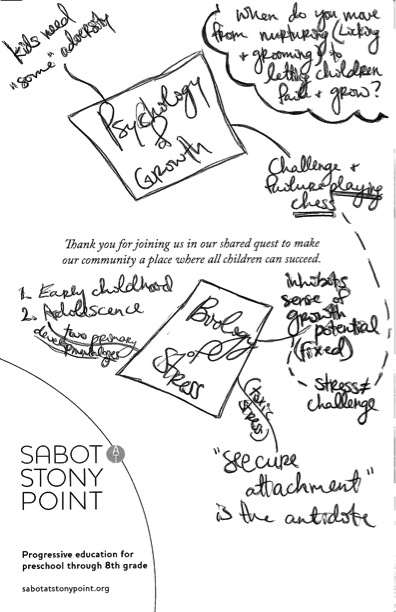 kids need
"some" adversity
When do you move
from nurturing (Licking
+ grooming) to
letting children
fail + grow?
Psychology
&
Growth
Challenge +
Failure playing
chess
Thank you for joining us in our shared quest to make
our community a place where all children can succeed.
1. Early childhood
2. Adolescence
two primary
developmental
Biology
of
Stress
inhibits
sense of
growth
potential
(fixed)
stress ≠
challenge
(toxic
stress)
"secure
attachment"
is the antidote
SABOT AT
STONY
POINT
Progressive education for
preschool through 8th grade
sabotatstonypoint.org